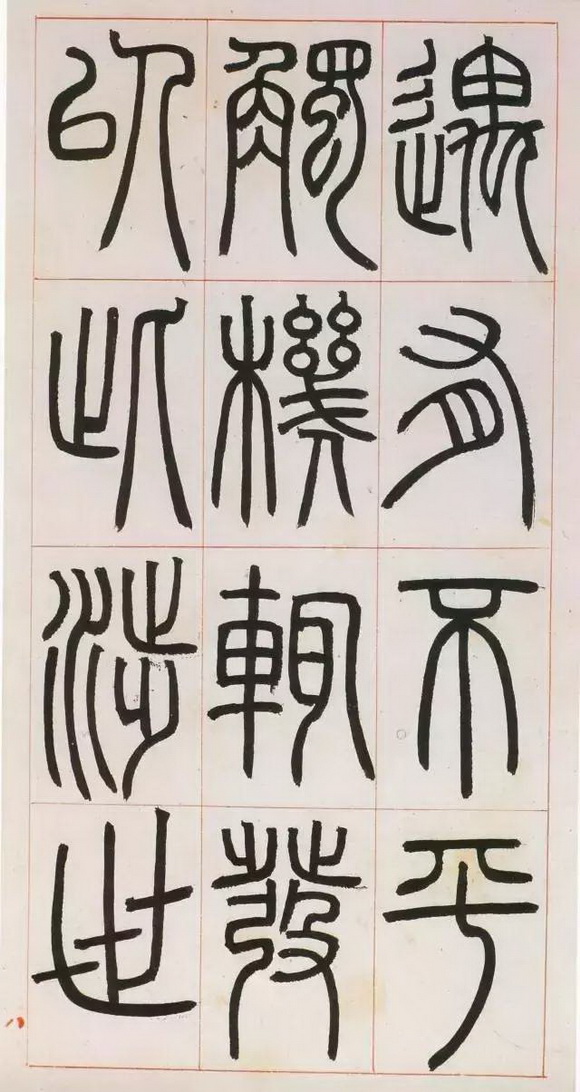 遇有不平
觸機輒發
以此涉世